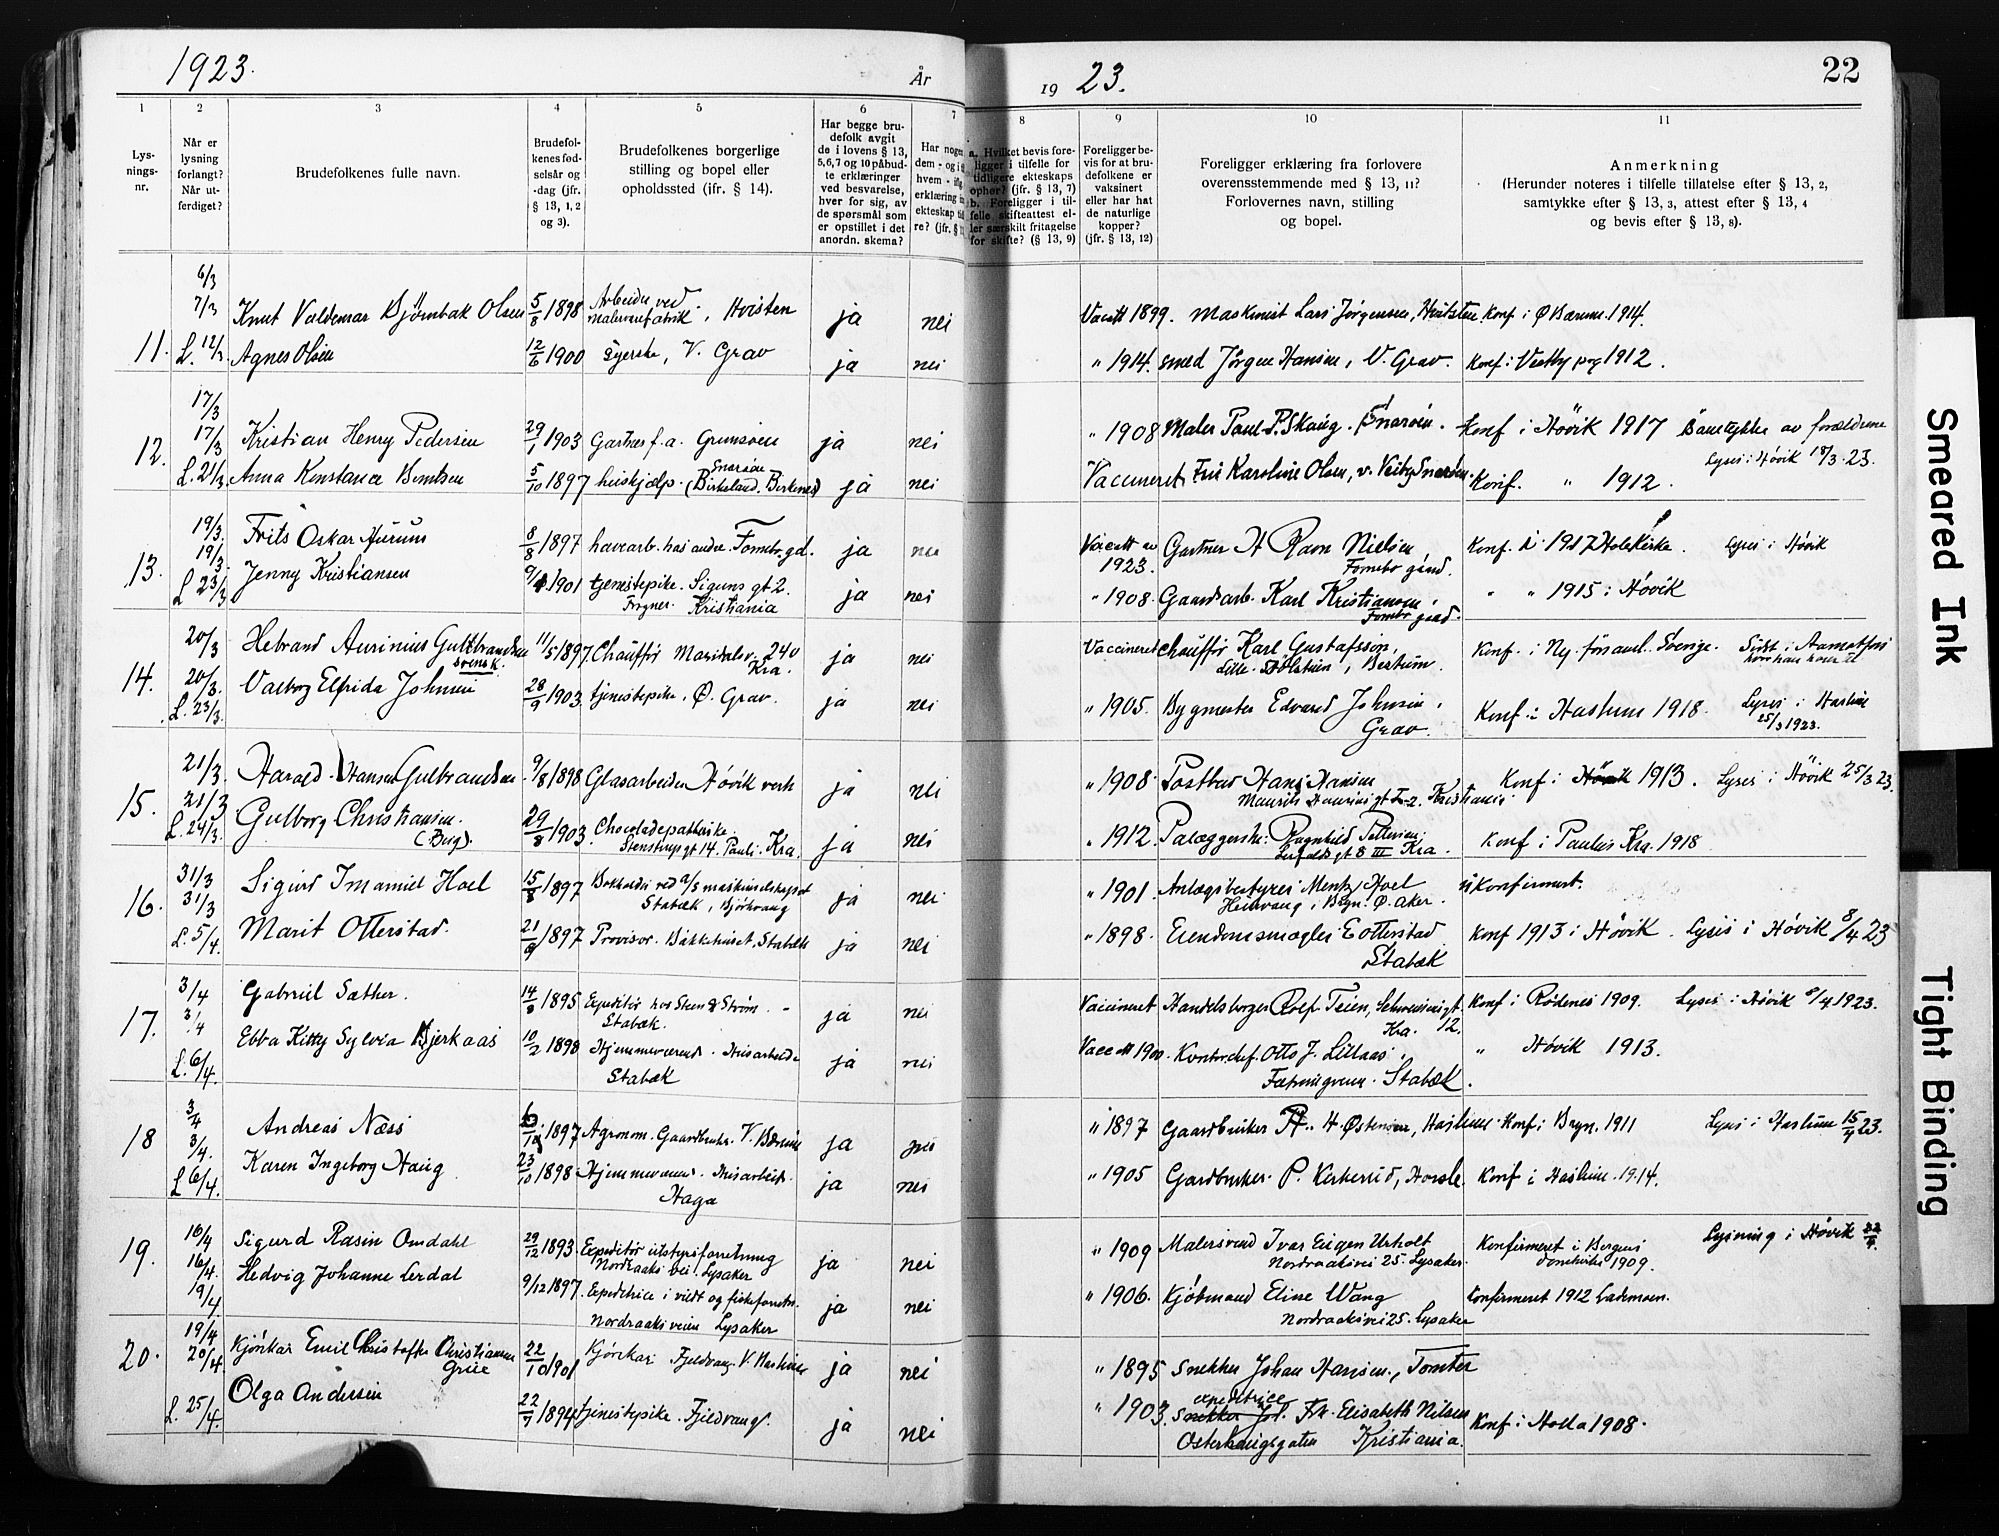 1923.
År
19 23.
22
1
2
3
4
5
6
7
8
9
10
11
Lysningsnr.
Når er lysning forlangt? Når utferdiget?
Brudefolkenes fulle navn.
Brudefolkenes fødselsår og -dag (jfr. § 13, 1, 2 og 3).
Brudefolkenes borgerlige stilling og bopel eller opholdssted (ifr. § 14).
Har begge brudefolk avgit de i lovens § 13, 5,6,7 og 10 påbudte erklæringer ved besvarelse, hver for sig, av de spørsmål som er opstillet i det anordn. skema?
Har nogen
dem - og i
hvem -
erklæring
ekteskap
re? (jfr. §
a. Hvilket bevis foreligger i tilfelle for tidligere ekteskaps ophør? (jfr. § 13, 7) b. Foreligger i tilfelle skifteattest eller særskilt fritagelse for skifte? (§ 13, 9)
Foreligger bevis for at brudefolkene er vaksinert eller har hat de naturlige kopper? (jfr. § 13, 12)
Foreligger erklæring fra forlovere overensstemmende med § 13, 11? Forlovernes navn, stilling og bopel.
Anmerkning (Herunder noteres i tilfelle tillatelse efter § 13, 2, samtykke efter § 13, 3, attest efter § 13, 4 og bevis efter § 13, 8).
6/3
7/3 Knut Valdemar Bjørnbak Olsen 5/8 1898 Arbeider ved Malervefabrik, Hvitsten ja nei Vacatt 1899. Maskinist Lars Jørgensen, Hvitsten. Konf i Ø Bærum 1914.
11. L. 12/3 Agnes Olsen 12/6 1900 Syerske, V. Grav ja nei " 1914. smed Jørgen Hansen, V. Grav. Konf i Vestby 1912.
17/3
12. 17/3 Kristian Henry Pedersen 29/1 1903 Gartner f.a. Grimsöen ja nei " 1908 Maler Paul P. Skaug. Snaröen. Konf i Hövik 1917 Samtykke av forældrene
Lyses i Høvik 18/3. 23.
L. 21/3 Anna Konstance Berntsen 5/10 1897 hushjælp. Snaröen (Birkeland, Birkenes) ja nei Vaccineret Fru Karoline Olsen, Snaröen. Konf. " 1912.
19/3 Frits Oskar 8/8 1897 havearb. hos andre. Fornebo gd. ja nei Vacatt av 1923. Gartner H Ravn Nielsen, Fornebo gaard. Konf. i 1917 Holekirke. Lyses i Høvik
13. 19/3
L 23/3 Jenny Kristiansen 1901 tjenestepike. Siguns gt 2. Frogner. Kristiania ja nei " 1908. Gaardsarb. Karl Kristiansen, Fornebo gaard. " " 1915 i Hövik
20/3 Hebrand Aurinius Gultbrandsen svensk. 11/5 1897. Chauffør Maridalsv. 240 Kra. ja nei Vaccineret chauffør Karl Gustafsson, Lille Stölsteen, Bærum. Konf. i Ny församl. Sverige.
14. 20/3
L. 23/3. Valborg Elfrida Johnsen 28/9 1903. tjenestepike, Ø. Grav. ja nei " 1905. Bygmester Edvard Johnsen, Grav. Konf. i Haslum 1918. Lyses i Haslum 25/3 1923.
21/3. Harald Hansen Gulbrandsen 9/8 1898 Glasarbeider Hövik verk ja nei " 1908. Postbud Hans Hansen Maurits Hansens gt 2. Kristiania Konf i Hövik 1913. Lyses i Hövik 25/3 23.
15. 21/3
L. 24/3. Gulborg Christiansen. (Berg). 29/8 1903. Chocoladepakkerske. Stenstrupsgt 14. Pauli. Kra. ja nei " 1912. Palæggerske. Ragnhild Pettersen. gt 8 III Kra. Konf i Paulus Kra. 1918
31/3 Sigurd Imanuel Hoel 15/8 1897 Bokholder ved A/S maskinselskapet Stabæk, Bjørkvang ja nei " 1901. Anlægsbestyrer Mentz Hoel Heidvang, Bryn. Ø. Aker. ikonfirmert.
16. 31/3
L. 5/4. Marit Otterstad. 21/9 1897 Provisor. Bakkehuset, Stabæk ja nei " 1898. Eiendomsmægler E Otterstad Stabæk Konf 1913 i Høvik. Lyses i Høvik 8/4 23
3/4 Gabriel Sæther. 14/8 1895 Expeditør hos Steen & Strøm. Stabæk. ja nei Vaccineret Handelsborger Rolf Teien, Schweensgt. 12. Kra. Konf i Rödenes 1909. Lyses i Høvik 8/4 1923.
17. 3/4
L. 6/4. Ebba Kitty Sylvia Bjerkaas 10/2 1898 Hjemmeværende. Husarbeide Stabæk ja nei Vacc att 1900. Kontorchef. Otto J. Lillaas, Stabæk. " Høvik 1913.
3/4 Andreas Næss 6/10 1897 Agronom. Gaardbruker. V. Bærum ja nei " 1897 Gaardbruker H. Østensen, Haslum. Konf i Bryn. 1911 Lyses i Haslum 15/4 23.
18 3/4.
L 6/4. Karen Ingeborg Haug 23/10 1898 Hjemmeværende. Husarbeide. Haga ja nei " 1905 Gardbruker. P. Kerkerud, Horsle. Konf i Haslum. 1914.
16/4 Sigurd Rasin Omdahl 29/12 1893. Expeditør utstyrsforretning Nordraaks vei. Lysaker ja nei " 1909 Malersvend Ivar Eugen Urholt Nordraaksvei 25. Lysaker. Konfirmeret i Bergens domkirke 1909. Lysning i Høvik 22/4.
19. 16/4
19/4 Hedvig Johanne Lerdal 9/12 1897. Expeditrice i vildt og fiskeforretn. Nordraaks veien Lysaker ja nei " 1906. Kjöbmand Eline Wang Nordraaksvei 25. Lysaker Konfirmeret 1912 Lademoen.
19/4
20. 20/4 Kjörekar Emil Christoffer Christiansen Grue 22/10 1901 Kjörekar Fjeldvang. V. Haslum ja nei " 1895 Snekker Johan Hansen, Tomter
L. 25/4. Olga Andersen 22/7 1894 tjenestepike. Fjeldvang. ja nei " 1903. expeditrice Snekker Joh. Frk. Elisabeth Nilsen Osterhausgaten Kristiania. Konf i Holla 1908.
Smeared Ink
Tight Binding